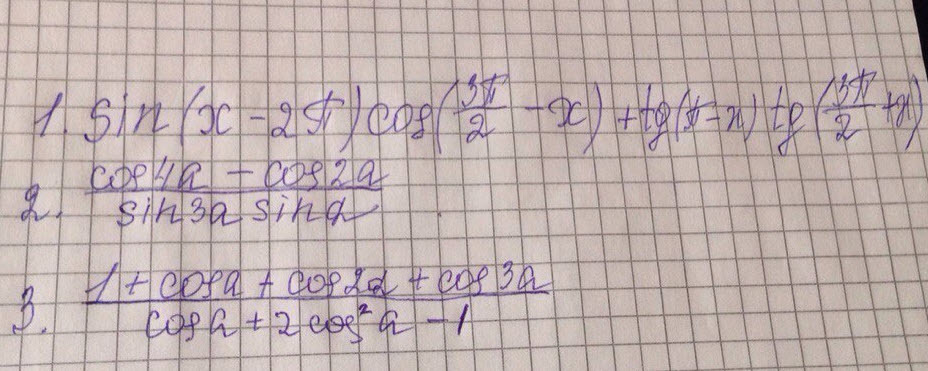 1. sin(x - 2π) cos(3π/2 - x) + tg(π - x) tg(3π/2 + x)
2. (cos4a - cos2a)/(sin3a sina)
3. (1 + cosa + cos2a + cos3a)/(cosa + 2cos²a - 1)